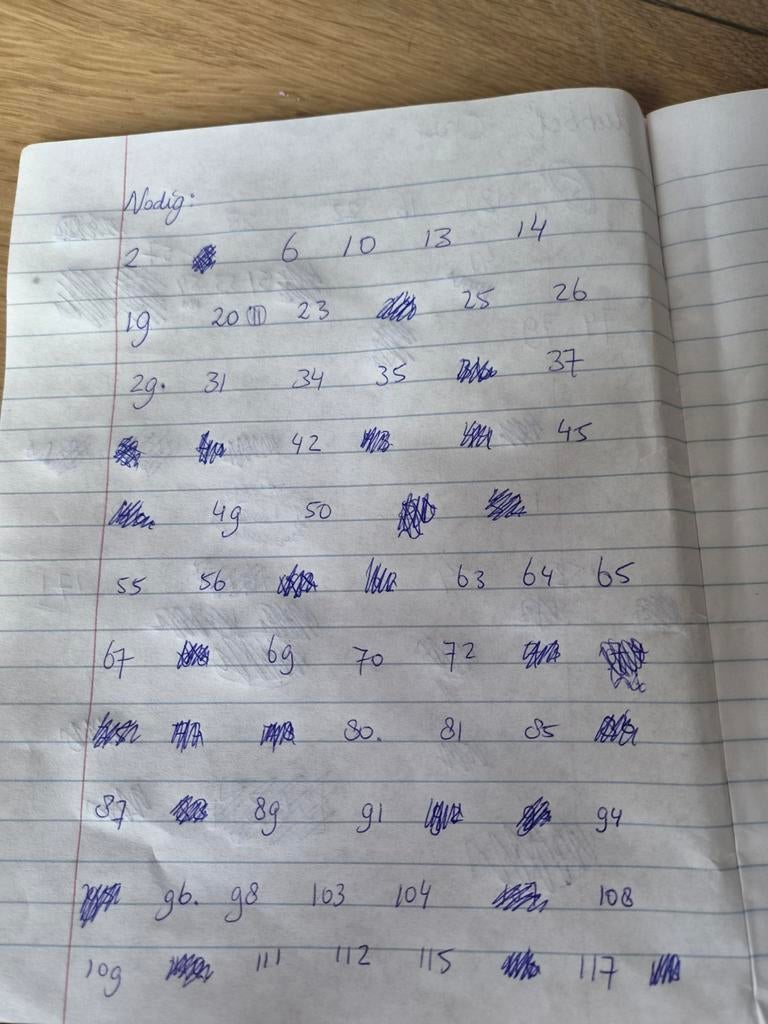 Nodig:
2 6 10 13 14
19 20 23 25 26
29. 31 34 35 37
42 45
49 50
55 56 63 64 65
67 69 70 72
80. 81 85
87 89 91 94
96. 98 103 104 108
109 111 112 115 117